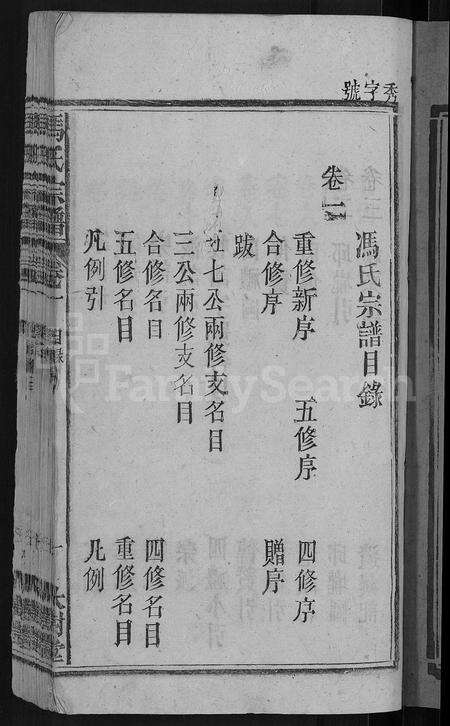 秀字號
馮氏宗譜目錄
卷一
重修新序 五修序 四修序
合修序 贈序
跋
七公兩修支名目
三公兩修支名目
合修名目 四修名目
五修名目 重修名目
凡例引 凡例
馮氏宗譜 卷一 目錄 一
FamilySearch